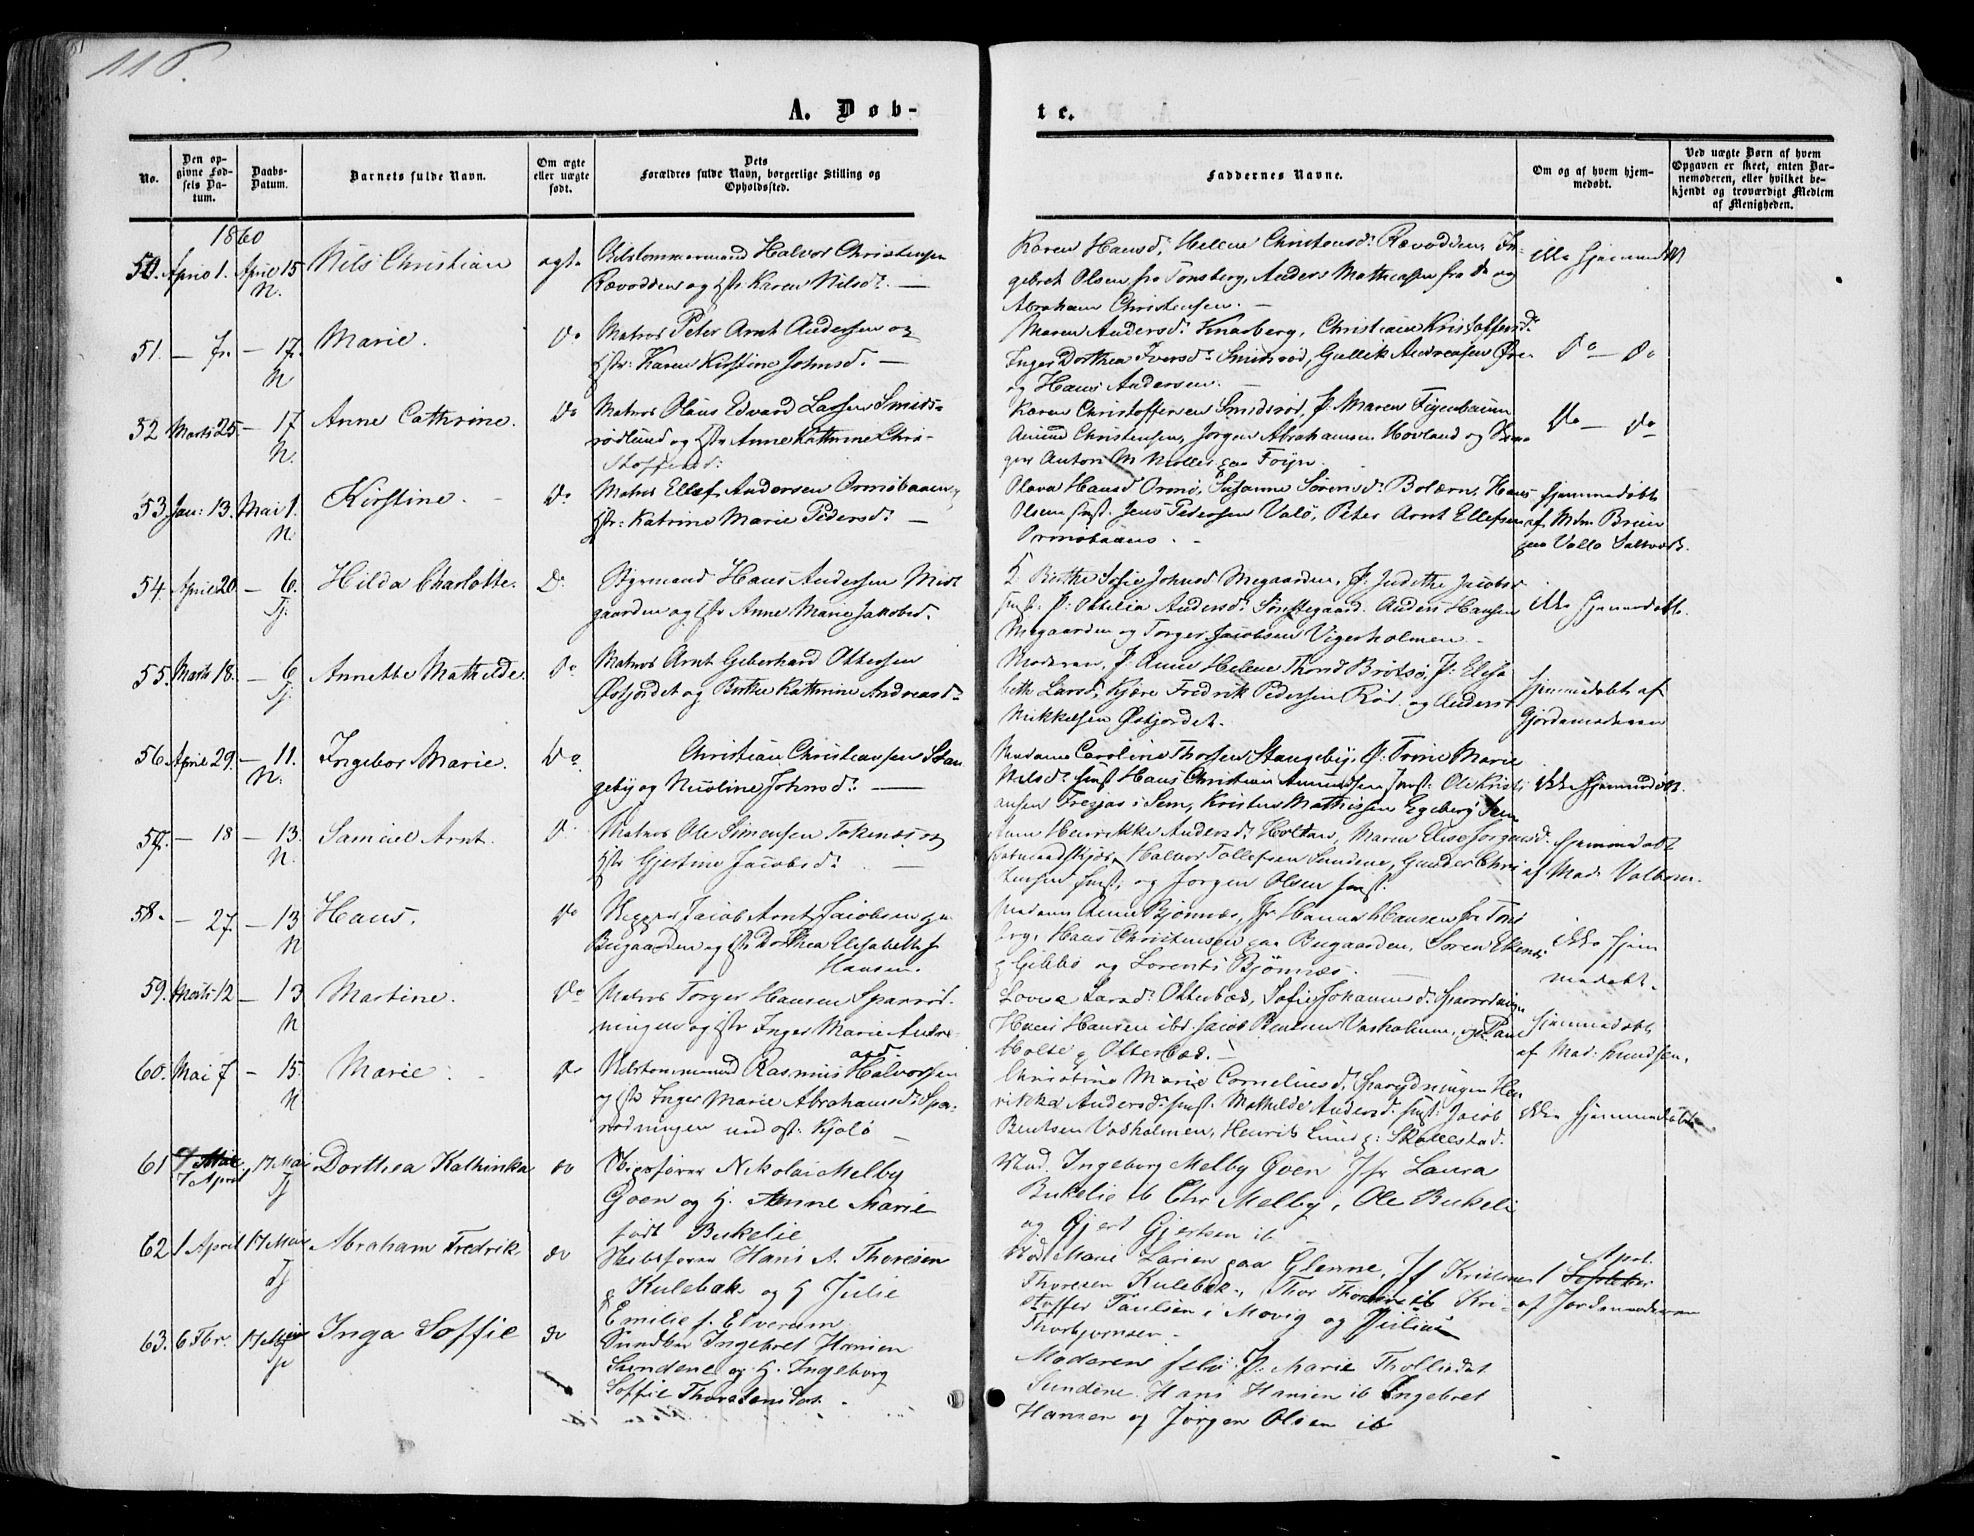 116.
A. Døb-
te.
No.
Den opgivne Fødsels Datum.
Daabs-Datum.
Barnets fulde Navn.
Om ægte eller uægte født.
Dets Forældres fulde Navn, borgerlige Stilling og Opholdssted.
Faddernes Navne.
Om og af hvem hjemmedøbt.
Ved uægte Børn af hvem Opgaven er skeet, enten Barnemoderen, eller hvilket bekjendt og troværdigt Medlem af Menigheden.
1860
50. April 1. April 15 N. Nils Christian ægte Halvor Christensen
Rævodden og Hstr Karen Nilsd. —
Karen Hansd. Helene Christensd. Rævodden,
Olsen fra Tønsberg, Anders Mathiesen fra do og
Abraham Christensen. —
ikke hjemmedøbt
51. — 7. — 17. N Marie. do Matros Peter Arnt Andersen og
Hstr: Karen Kirstine Johnsd. —
Maren Andersd. Knarberg, Christiane Kristoffersd.
Inger Dorthea Iversd. Smidsrød, Gullik Andreasen
og Hans Andersen.
do — do
52 Marts 25. — 17 N. Anne Cathrine. do Matros Olaus Edvard Larsen Smids-
rødlund og Hstr Anne Kathrine Chri-
stoffersd:
Karen Christoffersen Smidsrød, P. Maren
Amund Christensen, Jørgen Abrahamsen Hovland og
Anton M Møller paa Føyn.
do — do
53. Jan: 13. Mai 1. N. Kirstine. do Matros Ellef Andersen Ormøbaaen,
Hstr: Katrine Marie Pedersd. —
Olava Hansd Ormø, Susanne Sørensd. Bolærn, Hans
Olsen smst. Jens Pedersen Valø, Peter Arnt Ellefsen
hjemmedøbt
af Mdm Bruun
paa Vallø Saltværk.
54. April 20. — 6. Tj. Hilda Charlotte. Do Styrmand Hans Andersen Mid-
gaarden og Hstr Anne Marie Jakobsd.
Berthe Sofie Johnsd Megaarden, P. Judithe Jacobsd
smst. P: Ottilia Andersd. Anders Hansen
Megaarden og Torger Jacobsen Vigerholmen.
ikke hjemmedøbt.
55. Marts 18. — 6 Tj. Annette Mathilde. do Matros Arnt Geberhard Ottersen
Østjordet og Berthe Kathrine Andreasd.
Moderen, P. Anne Helene Thorsd Brøtsø, P: Elisa
beth Larsd, Kjøre Fredrik Pedersen Rød. og Anders
Mikkelsen Østjordet.
hjemmedøbt af
Gjordemoderen
56. April 29. — 11. N. Ingebor Marie. do Christian Christiansen Stan
geby og Nicoline Johnsd. —
Madame Caroline Thorsen Stangeby, P. Trine Marie
Nilsd. smst Hans Christian Amundsen smst. Ole Kristi
ansen i Sem, Kristen Mathissen Egeberg Sem
ikke hjemmedøbt.
57. — 18 — 13. N. Samuel Arnt. do Matros Ole Simensen Tokenæs og
Hstr Gjertine Jacobsd. —
Henrikke Andersd. Holtan, Maren Elise Jørgensd.
Halvor Tollefsen Sundene, Gunder Chri
stensen smst, og Jørgen Olsen smst.
hjemmedøbt
af Mad: Valbom.
58. — 27. — 13 N Hans. do Skipper Jacob Arnt Jacobsen paa
Bugaarden og Hstr Dorthea Elisabeth f.
Hansen.
Madame Anne Bjønnes, Jfr Hanna Hansen fra Tøns
berg, Hans Christensen paa Bugaarden, Søren
Gibbø og Lorents Bjønnæs.
ikke hjem
medøbt.
59. Marts 12 — 13 N Martine. do Matros Torger Hansen Sparrød-
ningen og Hstr Inger Marie Andre-
asd.
Lovise Larsd. Otterbæk, Sofie Johannesd. Sparrødningen
Hans Hansen ibd. Jacob Bentsen Vasholmen, og Paul
Holte p Otterbæk. —
hjemmedøbt
af Mad: Knudsen.
60. Mai 7 — 15. N Marie. do Selveiermand Rasmus Halvorsen
og Hstr Inger Marie Abrahamsd. Spa-
rødningen under Kjølø —
Christine Marie Corneliusd. Sparødningen Hen
rikke Andersd. smst. Mathilde Andersd. smst. Jacob
Bentsen Vasholmen, Henrik Lund p: Skallestad.
ikke hjemmedøbt
61 7 April 17 Mai Tj Dorthea Kathinka do Skibsfører Nikolai Melby
Goen og H. Anne Marie
født Bukelie
Mad. Ingeborg Melby Goen Jfr Laura
Bukelie ib Chr Melby, Ole Bukeli
og Gjert Gjertsen ib
62 1 April 17 Mai Tj Abraham Fredrik do Skibsfører Hans A. Thoresen
p Kulebak og H Julie
Emilie f. Elverum
Mad Marie Larsen paa Glenne, Jf Kristine
Thoresen Kulebak, Thor Thoresen ib Kri-
stoffer Paulsen i Movig og Julius
Thorbjørnsen.
1 April
af Jordemoderen
63. 6 Fbr. 17 Mai Tj Inga Soffie do Ingebret Hansen
Sundene og H. Ingeborg
Soffie Thorstensdat.
Moderen selv. P. Marie Thollisdat
Sundene. Hans Hansen ib Ingebret
Hansen og Jørgen Olsen ib